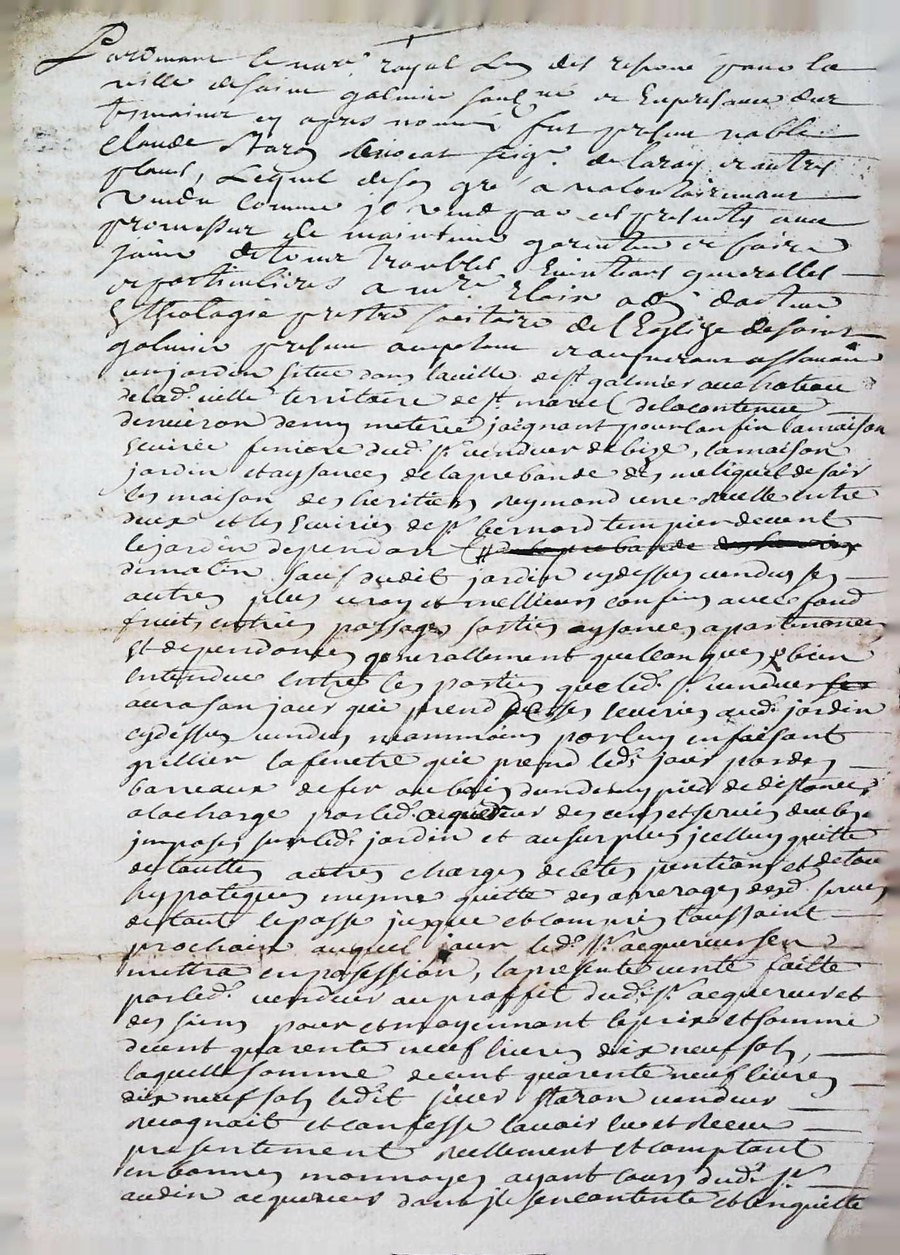 Pardevant le no.re royal
ville de saint galmier soub.né et en presance des
temoins cy apres nommés fut present noble
Claude Staron advocat seig.r de laray et autres
places, lequel de son gré a volontairement
vendu comme il vend par ces presentes avec
promesse de maintenir garentir et faire
jouir de tous troubles evictions generalles
et particulieres a m.re odin docteur
en theologie prestre societaire de l'Eglize de saint
galmier present acceptant et acquerant assavoir
un jardin situé dans la ville de s.t galmier au chateau
de lad. ville territoire de s.t marcel de la contenue
denviron demy meterée joignant pour confin la maison
ecuirie feniere dud. s.r vendeur de bize, la maison
jardin et aysances de la prebande des meliques de soir
les maison des heritiers reymond une ruelle entre
deux et les ecuiries de s.r bernard tempier de vent
le jardin dependant # de la prebande
de matin sauf dudit jardin cydessus vendus ses
autres plus vray et mellieurs confins avec ses fond
fruits entrées passages sorties aysances apartenances
et dependances generallement quelconques bien
entendue entre les parties que led. s.r vendeur
aura son jour qui prend ses ecuiries aud. jardin
cydessus vendus neammoins par luy en faisant
grillier la fenetre qui prend led. jour par des
barreaux de fer ou bois dun demy pied de distance
a la charge par led. acquereur des cens et servis deubs
imposes sur led. jardin et au surplus icelluy quitte
de touttes autres charges debtes pentions et de tous
hypoteques mesme quitte des arrerages desd. servis
de tout le passé jusque et compris toussaint
prochain auquel jour led. s.r acquereur sen
mettra en possession, la presente vente faitte
par led. vendeur au proffit dud. s.r acquereur et
des siens pour et moyennant le prix et somme
de cent quarente neuf livres dix neuf sols,
laquelle somme de cent quarente neuf livres
dix neuf sols ledit sieur staron vendeur
recognait et confesse lavoir eu et receu
presentement reellement et comptant
en bonnes monnoyes ayant cours dud. s.r
audin acquereur dont il sen contente et len quitte